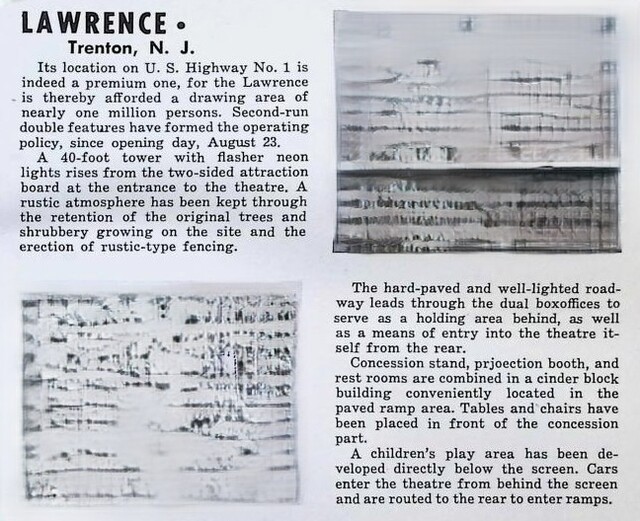 LAWRENCE •
Trenton, N. J.
Its location on U. S. Highway No. 1 is
indeed a premium one, for the Lawrence
is thereby afforded a drawing area of
nearly one million persons. Second-run
double features have formed the operating
policy, since opening day, August 23.
A 40-foot tower with flasher neon
lights rises from the two-sided attraction
board at the entrance to the theatre. A
rustic atmosphere has been kept through
the retention of the original trees and
shrubbery growing on the site and the
erection of rustic-type fencing.
The hard-paved and well-lighted road-
way leads through the dual boxoffices to
serve as a holding area behind, as well
as a means of entry into the theatre it-
self from the rear.
Concession stand, prjoection booth, and
rest rooms are combined in a cinder block
building conveniently located in the
paved ramp area. Tables and chairs have
been placed in front of the concession
part.
A children's play area has been de-
veloped directly below the screen. Cars
enter the theatre from behind the screen
and are routed to the rear to enter ramps.